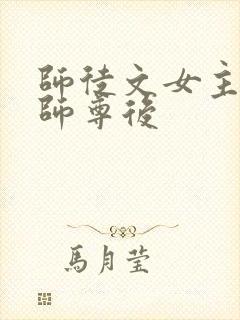 師徒文女主
師尊後
馬月瑩